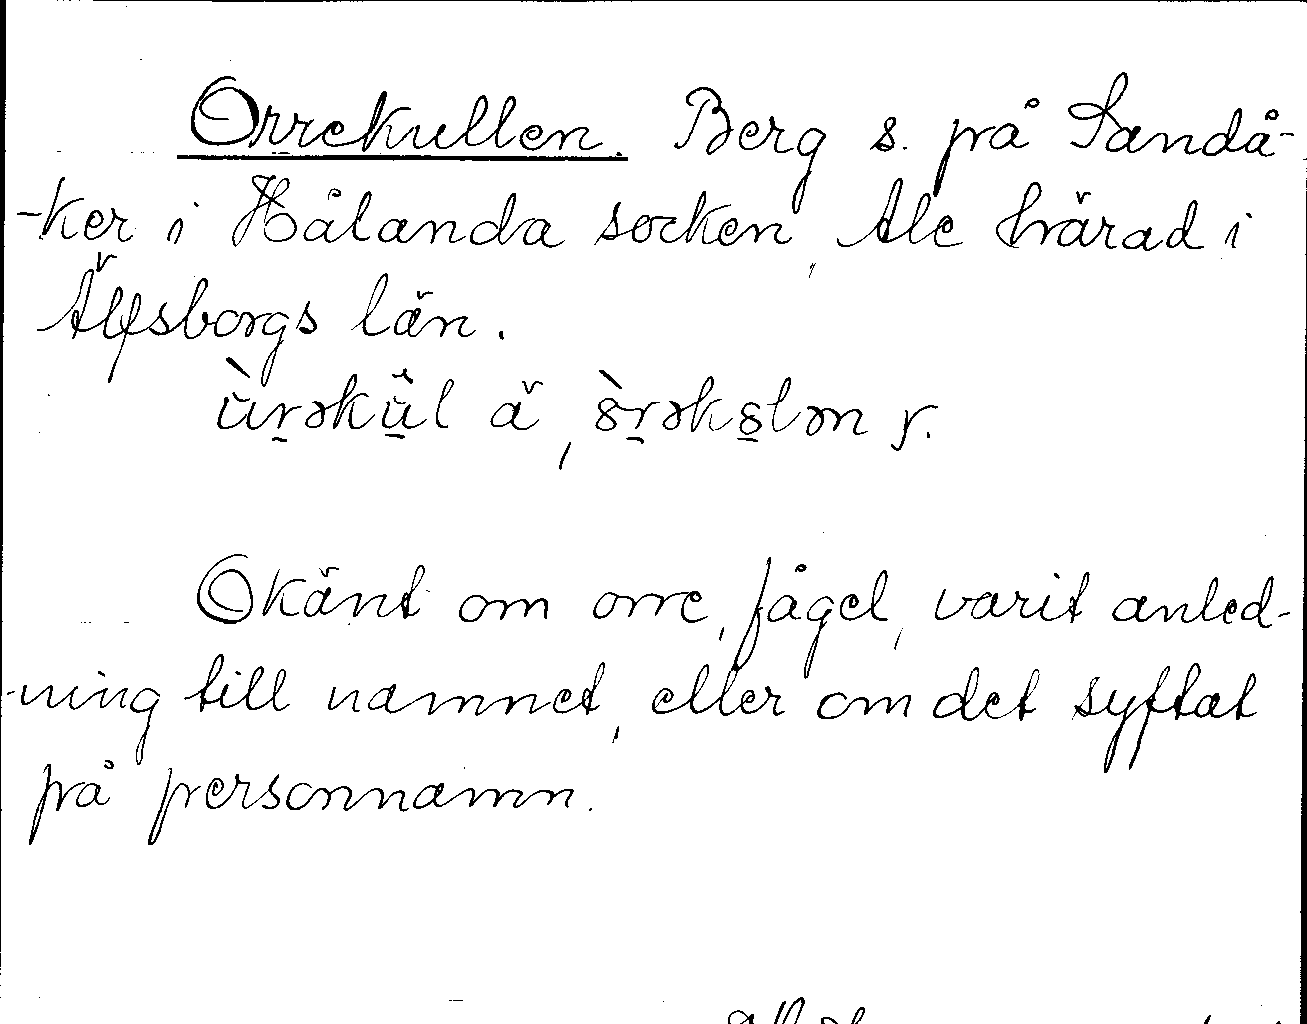 Orrekullen. Berg s. på Sandå-
-ker i Hålanda socken, Ale härad i
Älfsborgs län.
Okänt om orre, fågel, varit anled-
-ning till namnet, eller om det syftat
på personnamn.